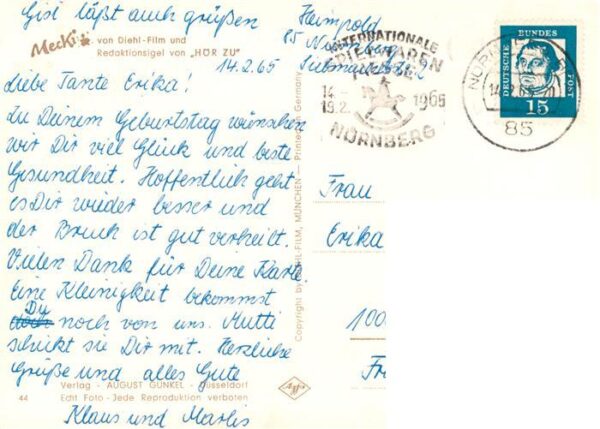 Gisl läßt auch grüßen
Mecki von Diehl-Film und
Redaktionsigel von „HÖR ZU"
14.2.65
Liebe Tante Erika!
Zu Deinem Geburtstag wünschen
wir Dir viel Glück und beste
Gesundheit. Hoffentlich geht
es Dir wieder besser und
der Bruch ist gut verheilt.
Vielen Dank für Deine Karte.
Eine Kleinigkeit bekommst
Du
noch von uns. Mutti
schickt sie Dir mit. Herzliche
Grüße und alles Gute
Klaus und Marlis
Verlag - AUGUST GUNKEL - Düsseldorf
44 Echt Foto - Jede Reproduktion verboten
Agfa
Copyright by DIEHL-FILM, MÜNCHEN — Printed Germany
Heimpold
85
INTERNATIONALE
SPIELWAREN
14.-
19.2. 1965
NÜRNBERG
NÜRNBERG
14
85
DEUTSCHE BUNDES POST
15
Frau
Erika
1000